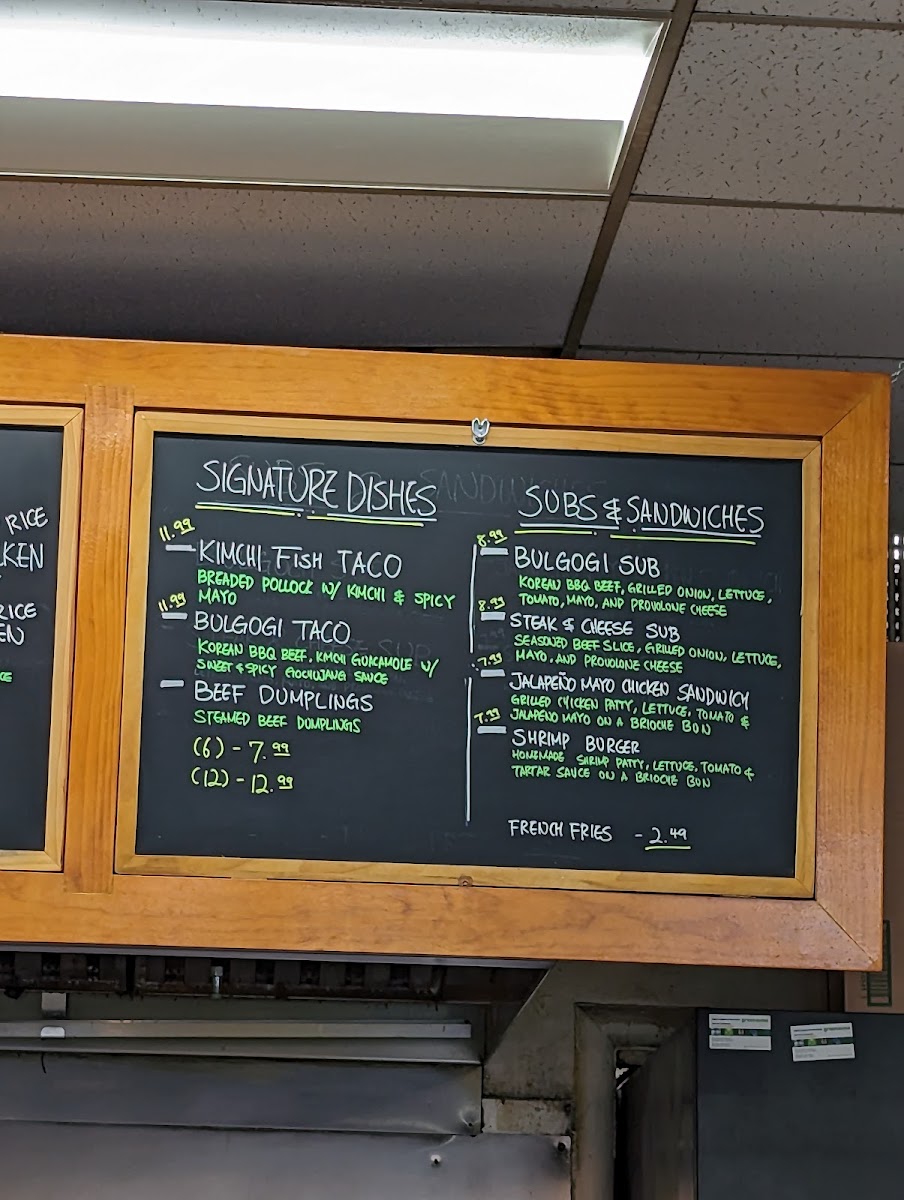 RICE
KEN
RICE
EN
SIGNATURE DISHES
11.99
KIMCHI FISH TACO
BREADED POLLOCK W/ KIMCHI & SPICY
MAYO
11.99
BULGOGI TACO
KOREAN BBQ BEEF, KIMCHI GUACAMOLE W/
SWEET & SPICY GOCHUJANG SAUCE
BEEF DUMPLINGS
STEAMED BEEF DUMPLINGS
(6) - 7.99
(12) - 12.99
SUBS & SANDWICHES
8.99
BULGOGI SUB
KOREAN BBQ BEEF, GRILLED ONION, LETTUCE,
TOMATO, MAYO, AND PROVOLONE CHEESE
8.99
STEAK & CHEESE SUB
SEASONED BEEF SLICE, GRILLED ONION, LETTUCE,
MAYO, AND PROVOLONE CHEESE
7.99
JALAPEÑO MAYO CHICKEN SANDWICH
GRILLED CHICKEN PATTY, LETTUCE, TOMATO &
JALAPENO MAYO ON A BRIOCHE BON
7.99
SHRIMP BURGER
HOMEMADE SHRIMP PATTY, LETTUCE, TOMATO &
TARTAR SAUCE ON A BRIOCHE BON
FRENCH FRIES - 2.49